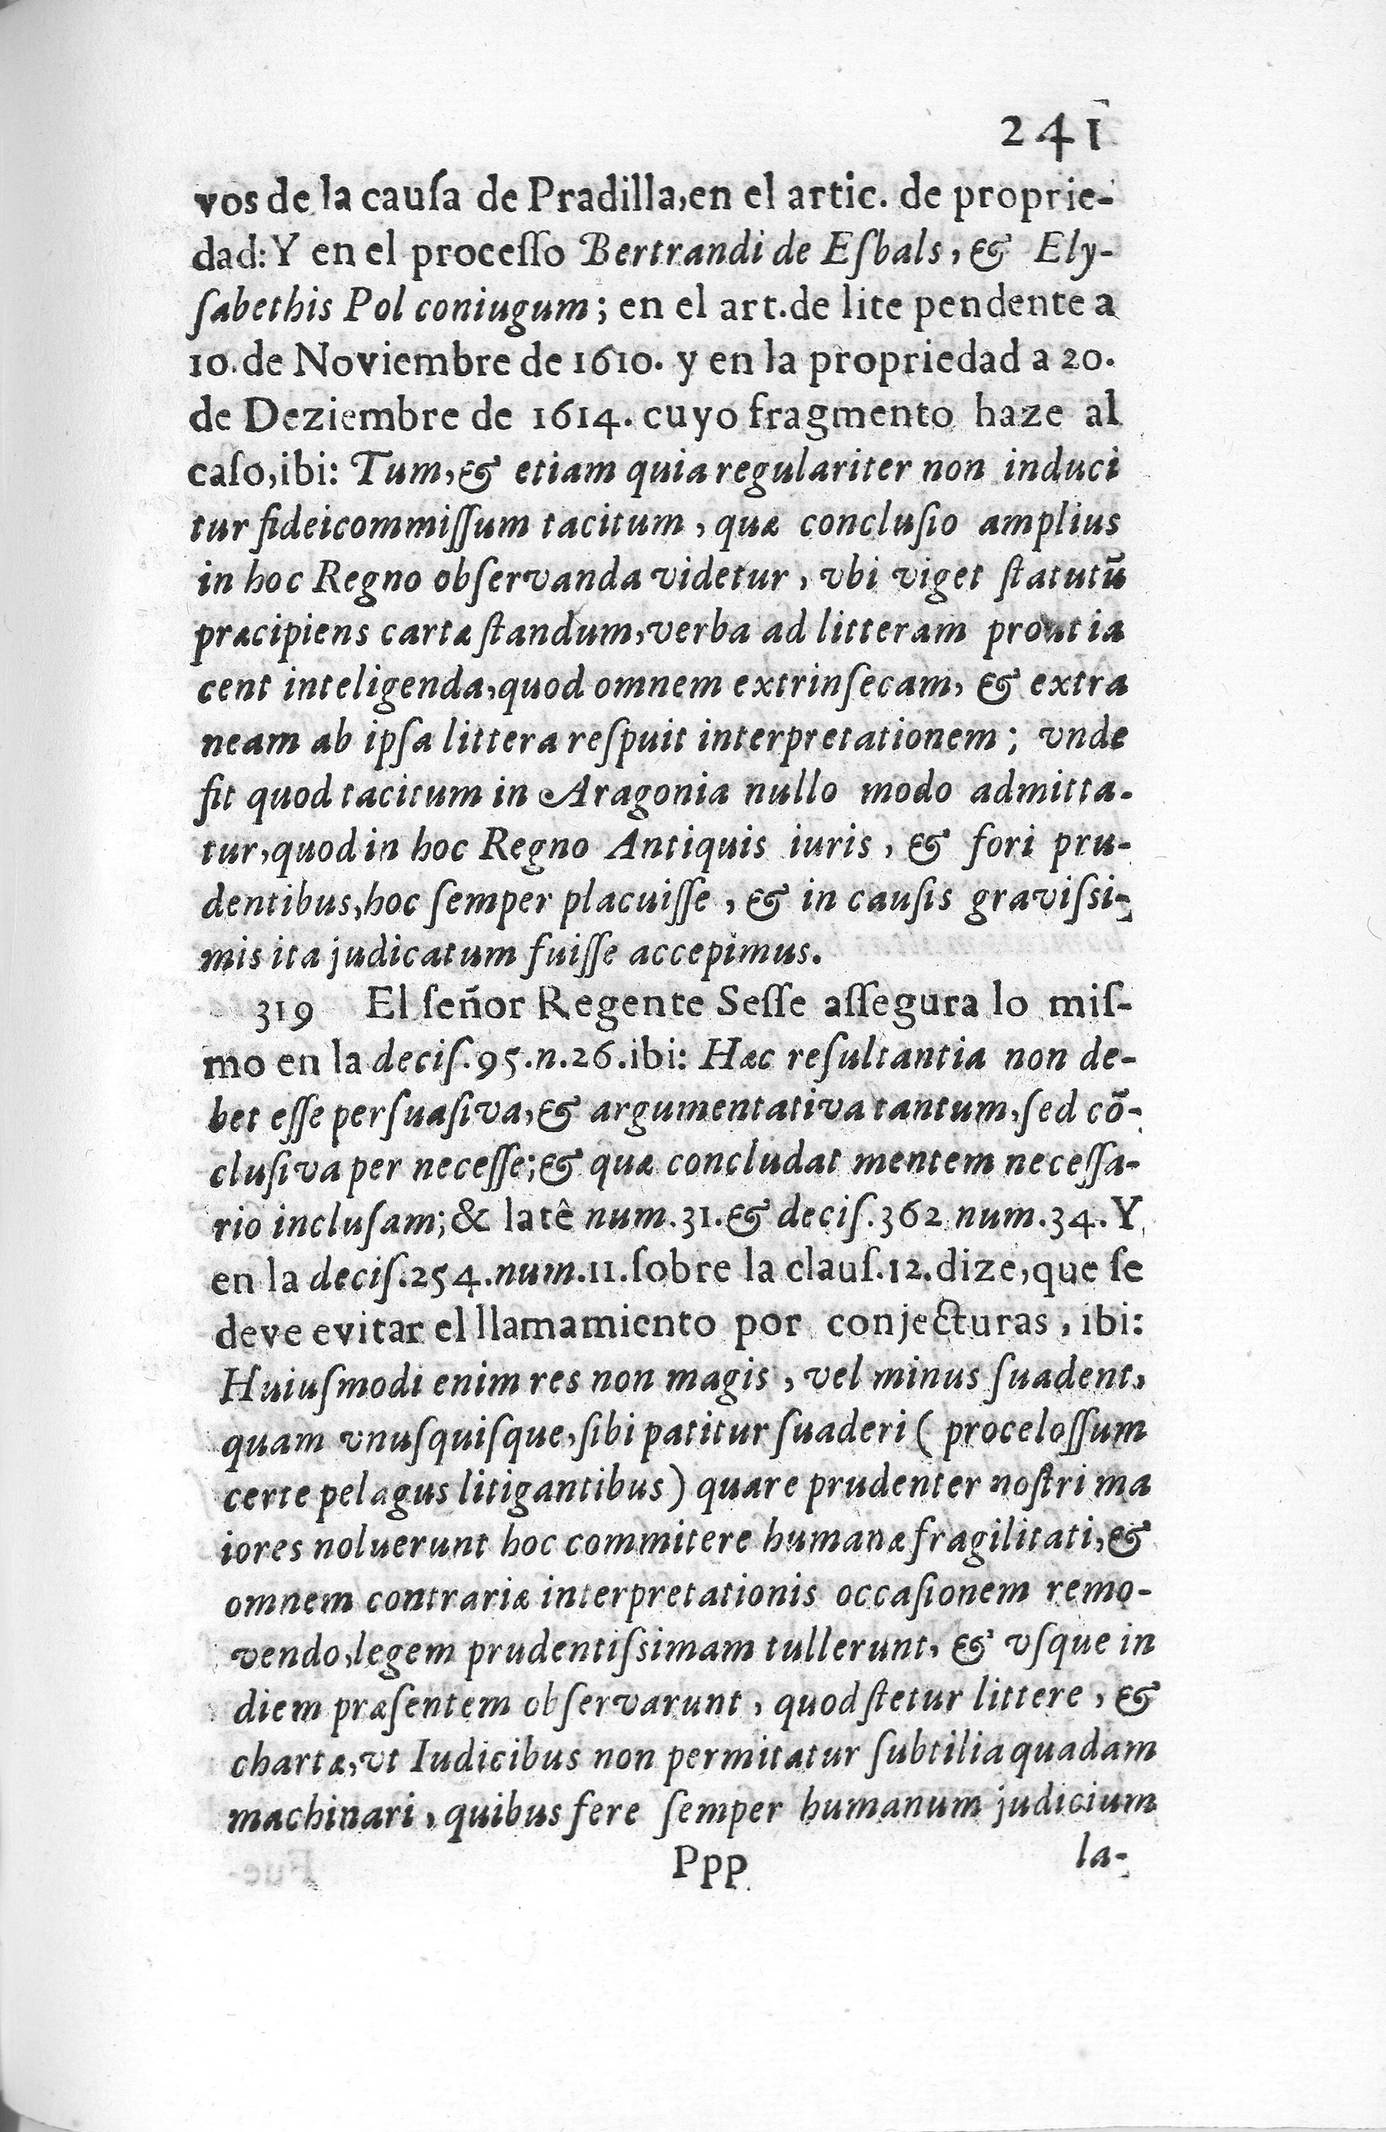 241
vos de la causa de Pradilla, en el artic. de proprie-
dad: Y en el processo Bertrandi de Esbals, & Ely-
sabethis Pol coniugum; en el art. de lite pendente a
10. de Noviembre de 1610. y en la propriedad a 20.
de Deziembre de 1614. cuyo fragmento haze al
caso, ibi: Tum, & etiam quia regulariter non induci
tur fideicommissum tacitum, quæ conclusio amplius
in hoc Regno observanda videtur, vbi viget statutū
præcipiens cartæ standum, verba ad litteram prout ia
cent inteligenda, quod omnem extrinsecam, & extra
neam ab ipsa littera respuit interpretationem; vnde
fit quod tacitum in Aragonia nullo modo admitta-
tur, quod in hoc Regno Antiquis iuris, & fori pru-
dentibus, hoc semper placuisse, & in causis gravissi-
mis ita judicatum fuisse accepimus.
319 El señor Regente Sesse assegura lo mis-
mo en la decis. 95. n. 26. ibi: Hæc resultantia non de-
bet esse persuasiva, & argumentativa tantum, sed cō-
clusiva per necesse; & quæ concludat mentem necessa-
rio inclusam; & latê num. 31. & decis. 362 num. 34. Y
en la decis. 254. num. 11. sobre la claus. 12. dize, que se
deve evitar el llamamiento por conjecturas, ibi:
Huiusmodi enim res non magis, vel minus suadent,
quam vnusquisque, sibi patitur suaderi ( procelossum
certe pelagus litigantibus) quare prudenter nostri ma
iores noluerunt hoc commitere humanæ fragilitati, &
omnem contrariæ interpretationis occasionem remo-
vendo, legem prudentissimam tullerunt, & vsque in
diem præsentem observarunt, quod stetur littere, &
chartæ, vt Iudicibus non permitatur subtilia quadam
machinari, quibus fere semper humanum judicium
Ppp la-